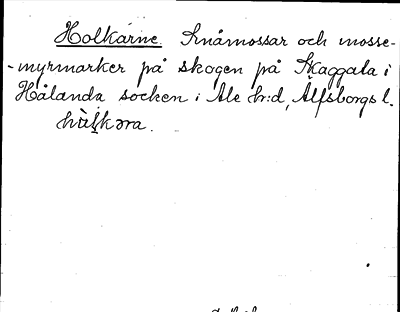 Holkärne. Småmossar och mosse-
-myrmarker på skogen på Skaggala i
Hålanda socken i Ale h:d, Älfsborgs l.